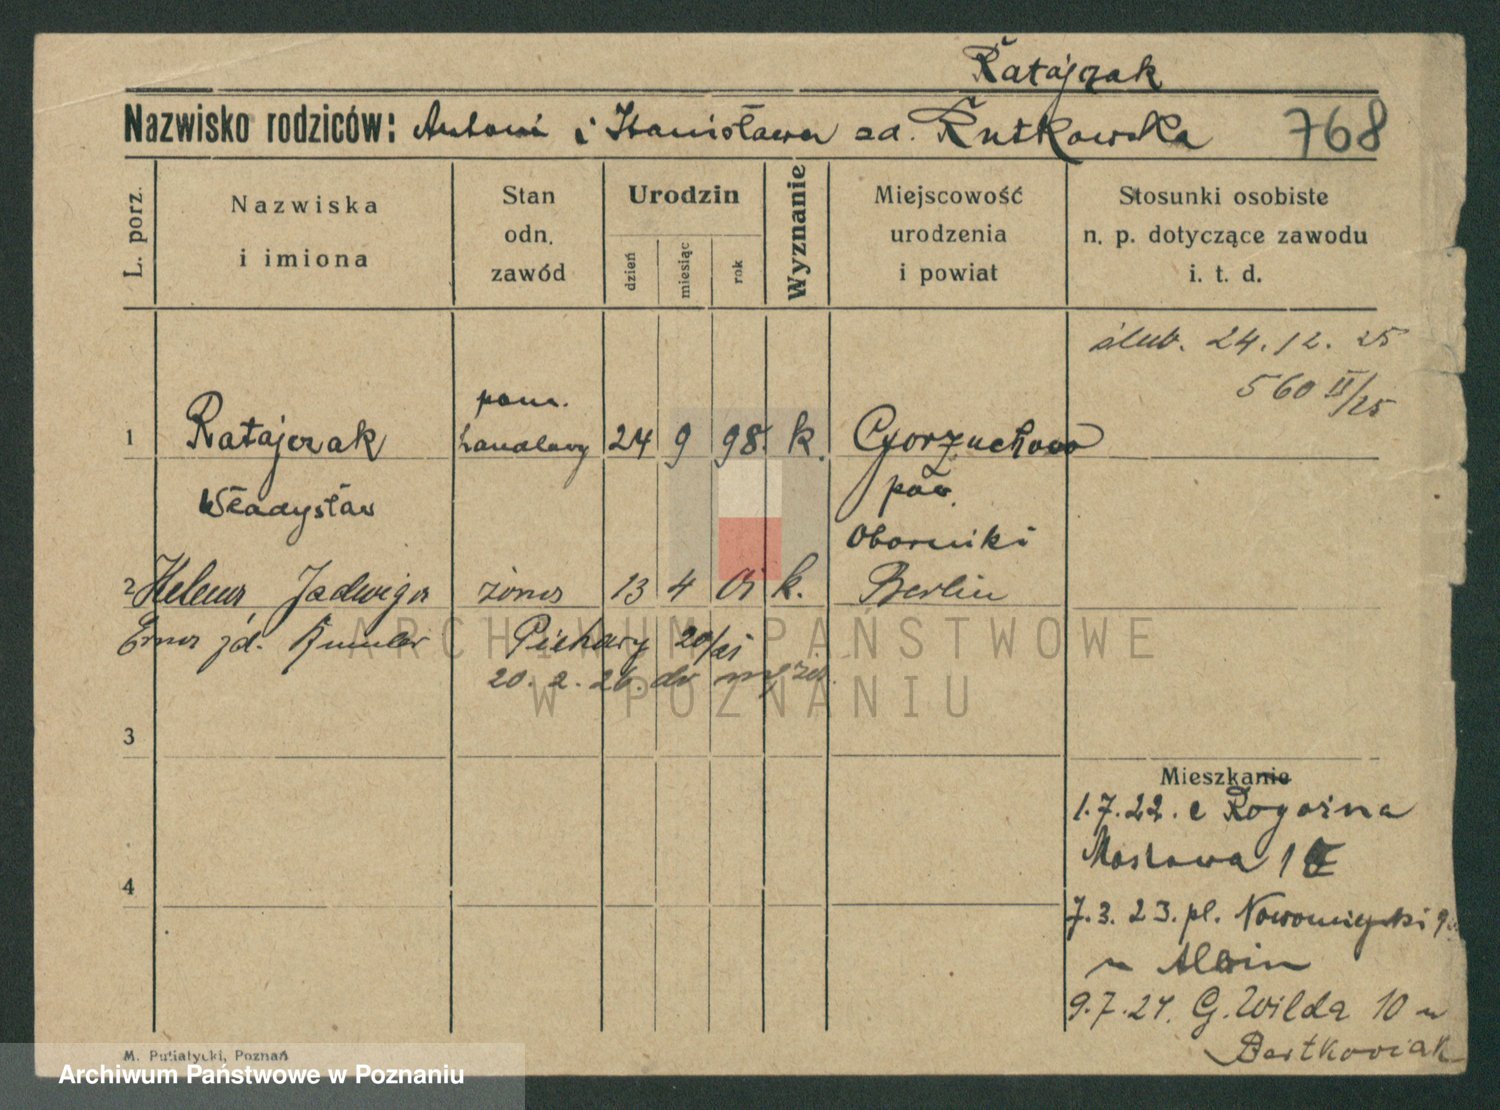 Ratajczak
Nazwisko rodziców: Antoni i Stanisława zd. Rutkowska 768
L. porz.
Nazwiska
i imiona
Stan
odn.
zawód
Urodzin
dzień
miesiąc
rok
Wyznanie
Miejscowość
urodzenia
i powiat
Stosunki osobiste
n. p. dotyczące zawodu
i. t. d.
ślub. 24.12.25
560 II/25
1 Ratajczak
Władysław
pom.
handlowy
24 9 98. k.
Gorzuchowo
pow.
Oborniki
2 Helena Jadwiga żona 13 4 01 k. Berlin
Erna zd.
Piekary 20/21
20. 2. 26. do
3
4
Mieszkanie
1.7.22. z Rogoźna
Mostowa 1
7.3.23. pl. Nowomiejski 9
u Albin
9.7.24. G. Wilda 10 u
Bartkowiak
M. Putiatycki, Poznań
ARCHIWUM PAŃSTWOWE
W POZNANIU
Archiwum Państwowe w Poznaniu